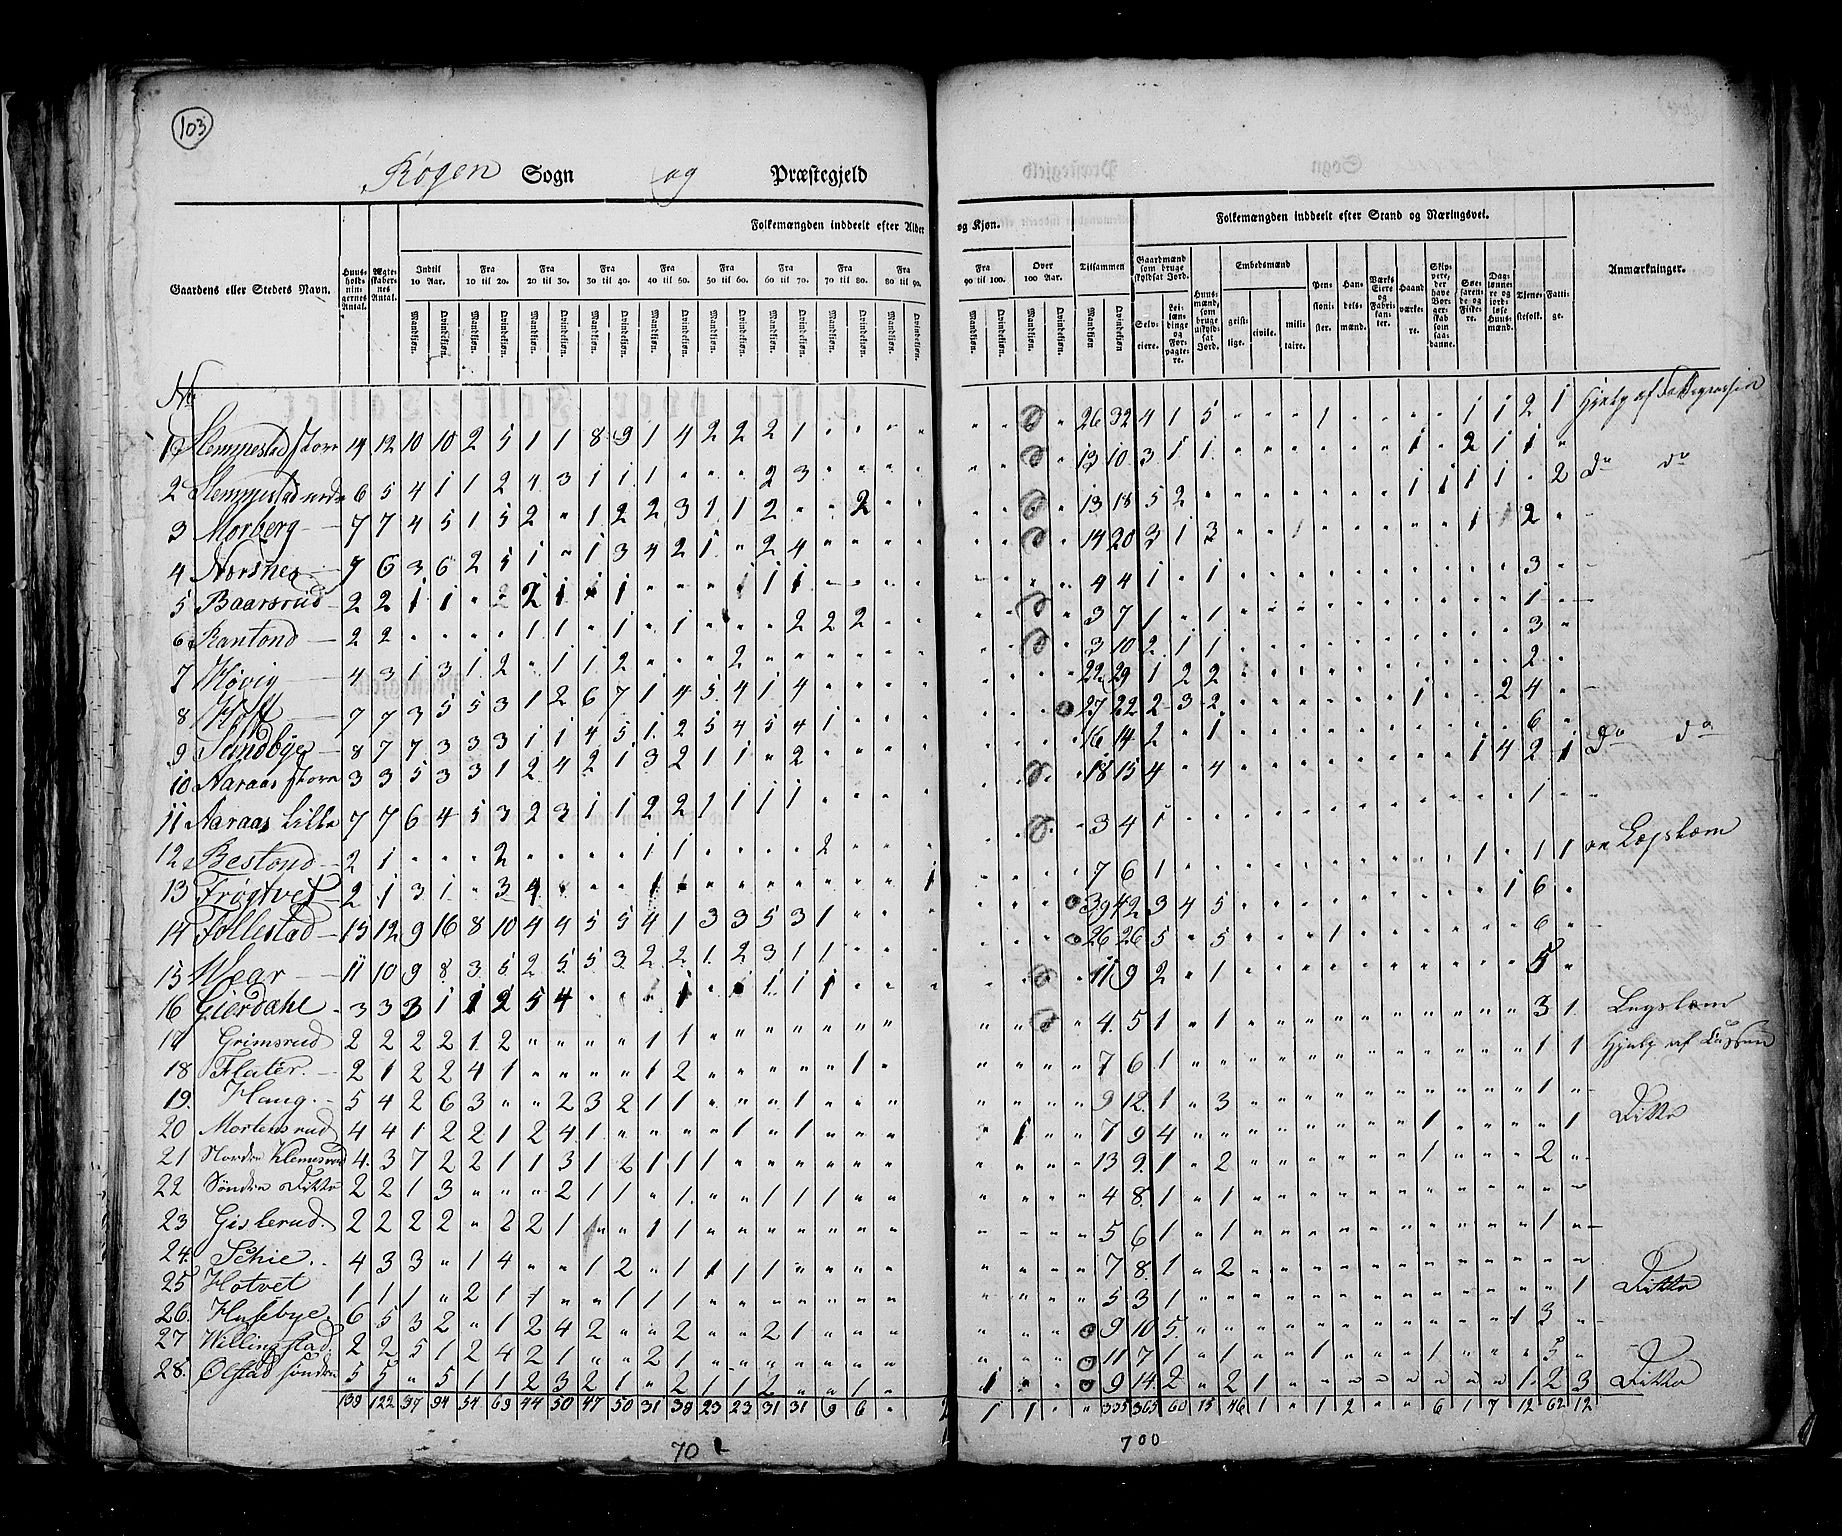 103
Røgen Sogn og Præstegjeld
Folkemængden inddeelt efter Alder og Kjøn.
Folkemængden inddeelt efter Stand og Næringsvei.
Gaardens eller Stedets Navn.
Huusholdningernes Antal.
Ægteskabernes Antal.
Indtil 10 Aar.
Fra 10 til 20.
Fra 20 til 30.
Fra 30 til 40.
Fra 40 til 50.
Fra 50 til 60.
Fra 60 til 70.
Fra 70 til 80.
Fra 80 til 90.
Fra 90 til 100.
Over 100 Aar.
Tilsammen
Mandkiøn. Qvindekiøn.
Gaardmænd som bruge skyldsat Jord.
Selveiere.
Leilændinge og Forpagtere.
Huusmænd, som bruge uskyldsat Jord.
Embedsmænd
geistlige. civile. militaire.
Pensionister.
Handelsmænd.
Værks Eiere og Fabrikanter.
Haandværkere.
Skippere, der have Borgerskab som saadanne.
Søefarende og Fiskere.
Daglønnere og jordløse Huusmænd.
Tjenestefolk.
Fattige.
Anmærkninger.
No
1 Slemmestad store 14 12 10 10 2 5 1 1 8 9 1 4 2 2 2 1 26 32 4 1 5 1 1 1 2 1
2 Slemmestad nedre 6 5 4 1 1 2 4 3 1 1 1 2 3 13 10 3 1 1 1 2 1 1 Do Do
3 Morberg 7 7 4 5 1 5 2 1 2 2 3 1 1 2 2 13 18 5 2 1 1 1 1 2
4 Norsnes 7 6 3 6 2 5 1 1 3 4 2 1 2 4 14 20 3 1 3 1 1 2
5 Baarsrud 2 2 1 1 2 2 1 1 1 1 1 1 4 4 1 1 3
6 Rantond 2 2 1 1 1 1 2 2 2 3 7 1 1 1
7 Høvig 4 3 1 3 1 2 1 1 2 2 3 10 2 1 1 3
8 Hoff 7 7 3 5 5 3 1 2 6 7 1 4 5 4 1 4 22 29 1 2 2 2
9 Sundbye 8 7 7 3 3 3 1 1 4 5 1 2 5 4 5 4 1 27 22 2 3 2 1 2 4
10 Aaraas store 3 3 5 3 3 1 2 4 2 1 3 2 1 1 2 16 14 2 1 6
11 Aaraas Lille 7 7 6 4 5 3 2 3 1 1 2 2 1 1 1 1 18 15 4 4 1 4 2 1 Do Do
12 Bestond 2 1 2 1 1 2 3 4 1 1
13 Frøgtvet 2 1 3 1 3 4 1 1 1 7 6 1 1 1 1
14 Follestad 15 12 9 16 8 10 4 4 5 5 4 1 3 3 5 3 1 39 42 3 4 5 1 6
15 Wear 11 10 9 8 3 5 2 5 5 3 2 2 1 2 3 1 1 26 26 5 5 1 6
16 Gierdahl 3 3 3 1 1 2 5 4 1 1 1 1 11 9 2 1 5
17 Grimsrud 2 2 2 2 1 2 1 1 4 5 1 1 3 1
18 Flater 2 1 2 2 4 1 1 2 1 7 6 1 1 1
19. Haug. 5 4 2 6 3 2 3 2 1 1 1 9 12 1 3 1
20 Mortensrud 4 4 1 2 2 1 2 4 1 1 1 1 7 9 4 1 1 Ditto
21 Nordre Klemesrud 4 3 7 2 2 1 1 3 1 2 1 1 1 13 9 1 2 1 2
22 Søndre Ditto 2 2 1 3 2 1 1 1 1 1 1 4 8 1 1
23 Gislerud 2 2 2 2 2 2 1 1 1 5 6 1 1 1
24. Schie 4 3 3 1 4 1 2 1 1 1 1 7 8 1 2
25 Hotvet 1 1 1 2 1 1 1 1 5 3 1 1 Ditto
26. Husebye 6 5 3 2 1 2 4 2 2 2 1 9 10 5 1 3
27 Willingstad 2 2 5 1 2 4 2 1 2 1 11 7 1 1 1 1 5
28. Olstad søndre 5 5 5 1 1 2 3 2 1 2 1 1 2 1 1 9 14 2 2 1 1 2 3 Ditto
139 122 97 94 54 69 44 50 47 50 31 39 23 23 31 31 9 6 2 1 1 335 365 60 15 46 1 1 2 6 1 7 12 62 12
70
700